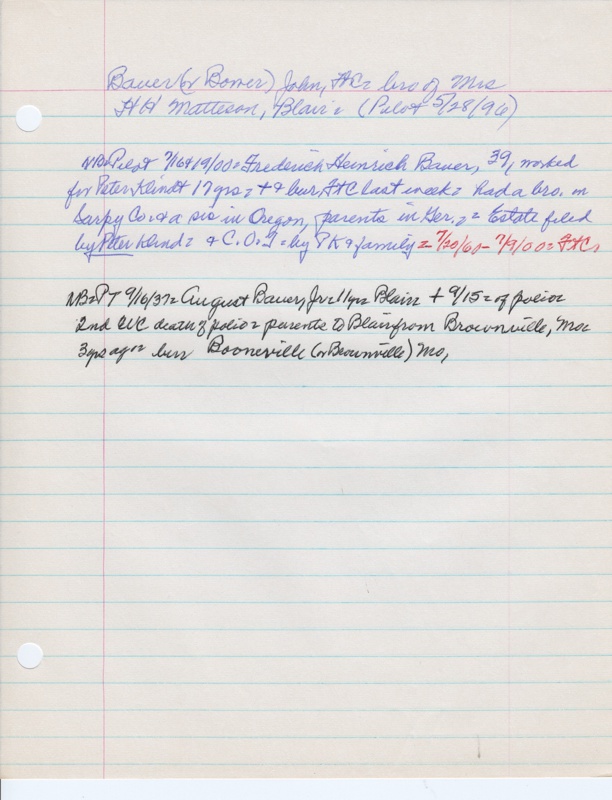 Bauer (or Bower) John, FtC = bro of Mrs
HH Matteson, Blair = (Pilot 5/28/96)
NB = Pilot 7/16 & 19/00 = Frederick Heinrich Bauer, 39, worked
for Peter Klindt 17 yrs = + & bur FtC last week = had a bro. in
Sarpy Co. & a sis in Oregon, parents in Ger. = Estate filed
by Peter Klind = & C.O.T = by PK & family = 7/20/60 - 7/9/00 = FtC
NB = PT 9/16/37 = August Bauer, Jr = 11 yr = Blair + 9/15 = of polio =
2nd WC death of polio = parents to Blair from Brownville, Mo =
3 yrs ago = bur Booneville (or Brownville) Mo,